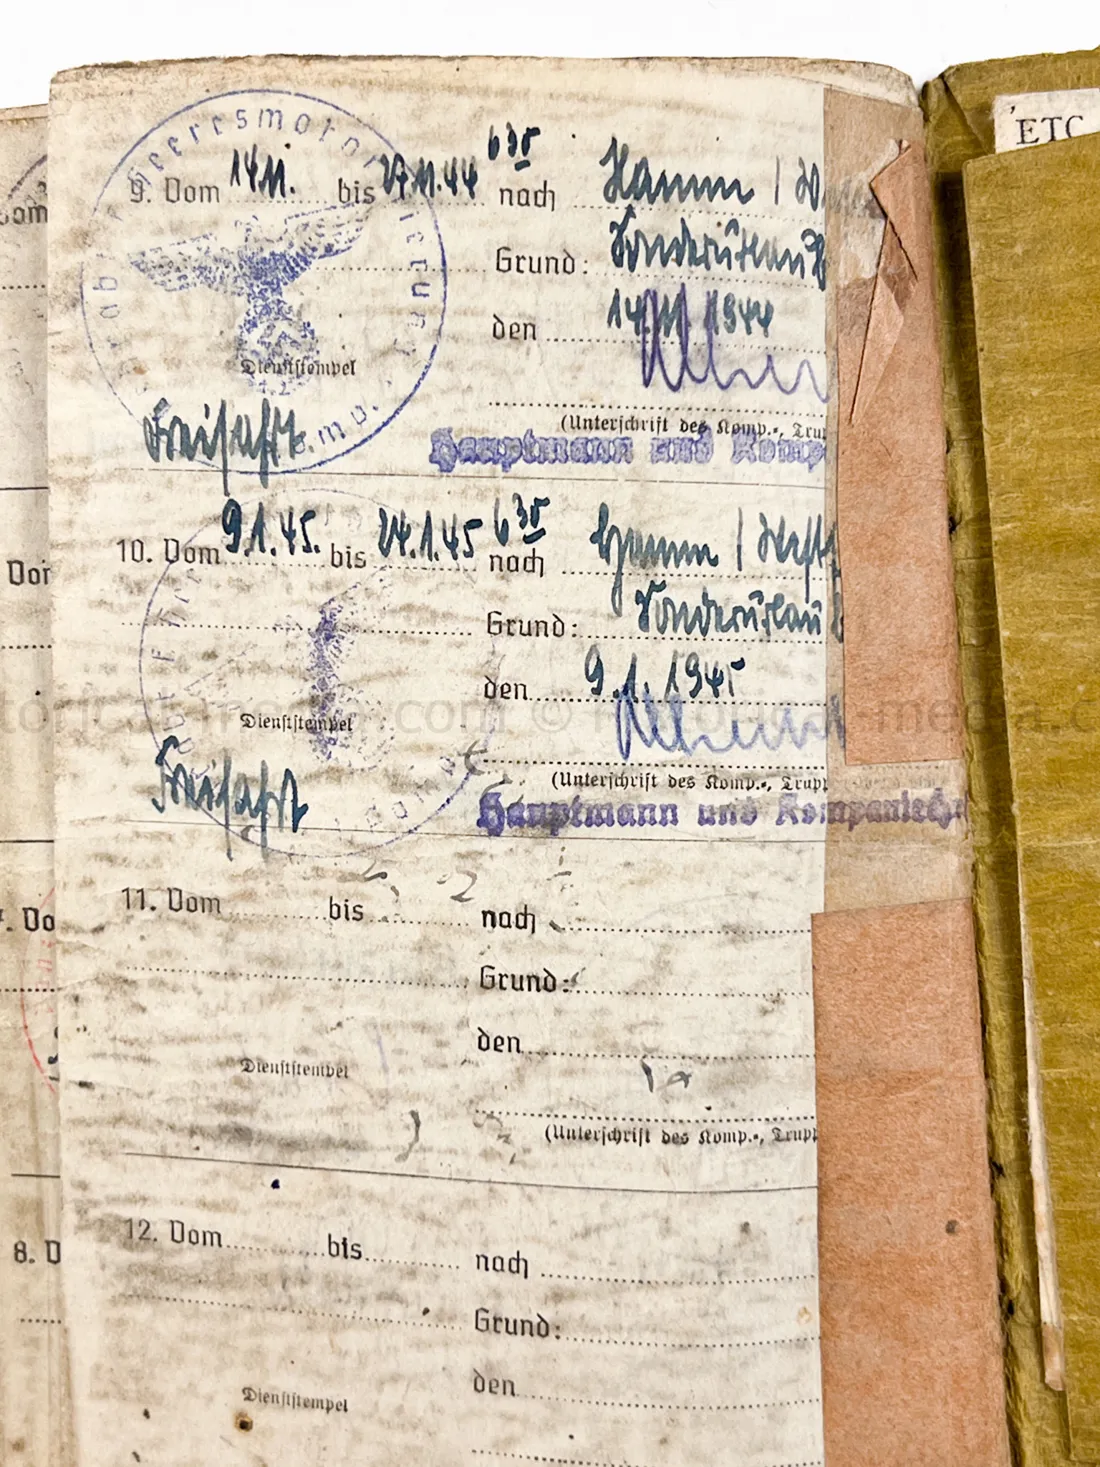 'ETC
9. Vom 14.11. bis 27.11.44 6 30 nach Hamm / W
Grund: Sonderurlaub
den 14.11.1944
Dienststempel
(Unterschrift des Komp.-, Trup
Freifahrt.
Hauptmann und Komp
10. Vom 9.1.45. bis 24.1.45 6 30 nach Hamm / Westf
Grund: Sonderurlaub
den 9.1.1945
Dienststempel
(Unterschrift des Komp.-, Trupp
Freifahrt
Hauptmann und Kompaniech
11. Vom bis nach
Grund:
den
Dienststempel
(Unterschrift des Komp.-, Trupp
12. Vom bis nach
Grund:
den
Dienststempel
8. V